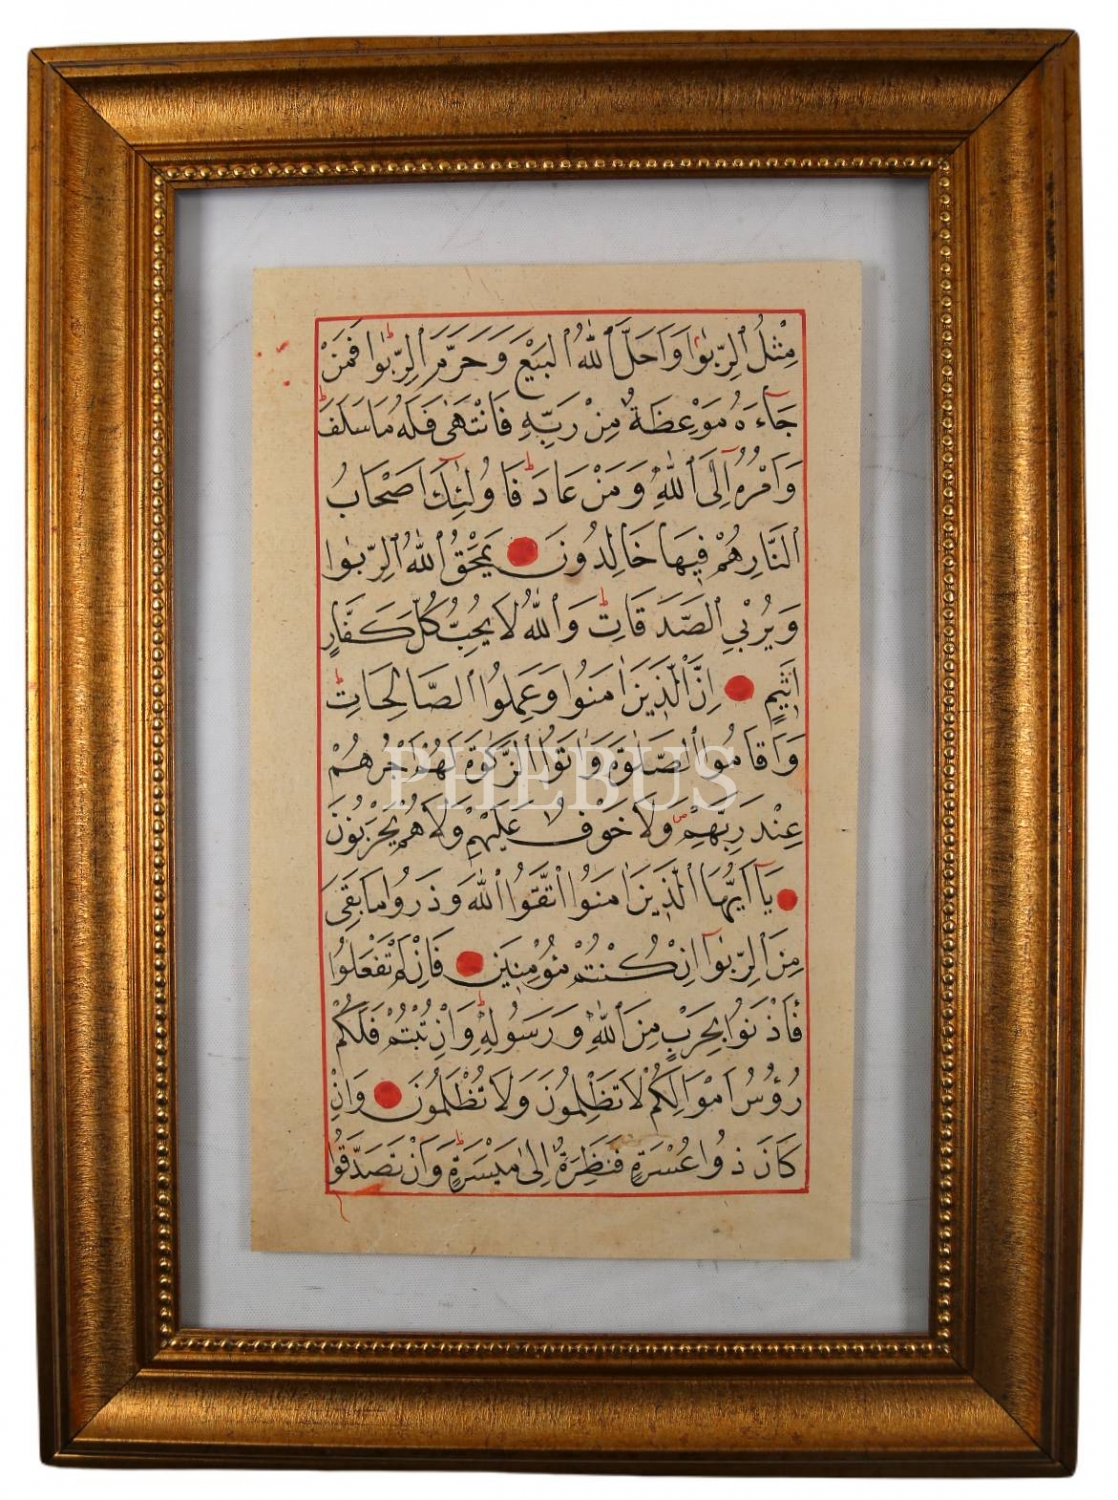 مِثْلُ الرِّبٰوا وَاَحَلَّ اللّٰهُ الْبَيْعَ وَحَرَّمَ الرِّبٰوا فَمَنْ
جَٓاءَهُ مَوْعِظَةٌ مِنْ رَبِّهِ فَانْتَهٰى فَلَهُ مَا سَلَفَ
وَاَمْرُهُٓ اِلَى اللّٰهِ وَمَنْ عَادَ فَاُولٰٓئِكَ اَصْحَابُ
النَّارِ هُمْ فِيهَا خَالِدُونَ يَمْحَقُ اللّٰهُ الرِّبٰوا
وَيُرْبِي الصَّدَقَاتِ وَاللّٰهُ لَا يُحِبُّ كُلَّ كَفَّارٍ
اَثِيمٍ اِنَّ الَّذِينَ اٰمَنُوا وَعَمِلُوا الصَّالِحَاتِ
وَاَقَامُوا الصَّلٰوةَ وَاٰتَوُا الزَّكٰوةَ لَهُمْ اَجْرُهُمْ
PHEBUS
عِنْدَ رَبِّهِمْ وَلَا خَوْفٌ عَلَيْهِمْ وَلَا هُمْ يَحْزَنُونَ
يَٓا اَيُّهَا الَّذِينَ اٰمَنُوا اتَّقُوا اللّٰهَ وَذَرُوا مَا بَقِيَ
مِنَ الرِّبٰٓوا اِنْ كُنْتُمْ مُؤْمِنِينَ فَاِنْ لَمْ تَفْعَلُوا
فَأْذَنُوا بِحَرْبٍ مِنَ اللّٰهِ وَرَسُولِهِ وَاِنْ تُبْتُمْ فَلَكُمْ
رُؤُسُ اَمْوَالِكُمْ لَا تَظْلِمُونَ وَلَا تُظْلَمُونَ وَاِنْ
كَانَ ذُوا عُسْرَةٍ فَنَظِرَةٌ اِلٰى مَيْسَرَةٍ وَاَنْ تَصَدَّقُوا